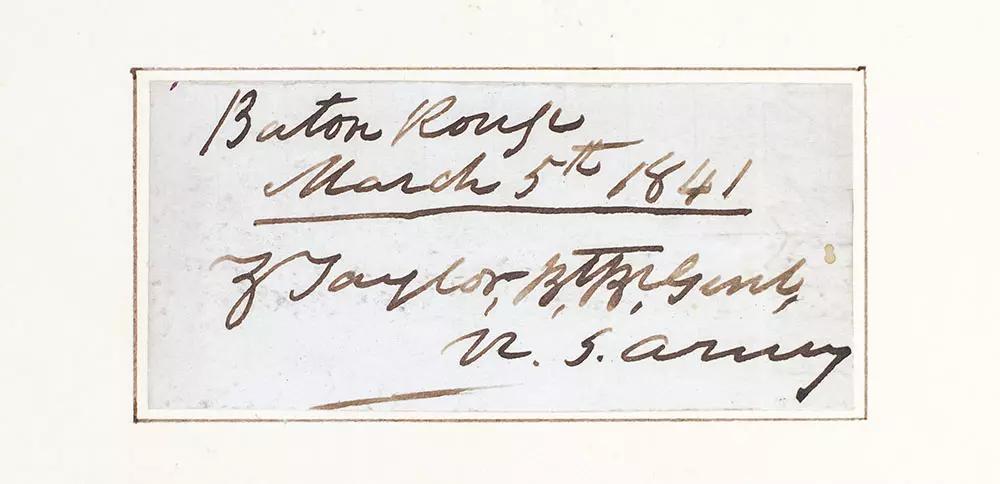 Baton Rouge
March 5th 1841
Z Taylor, Bt. Br. Genl,
U. S. Army